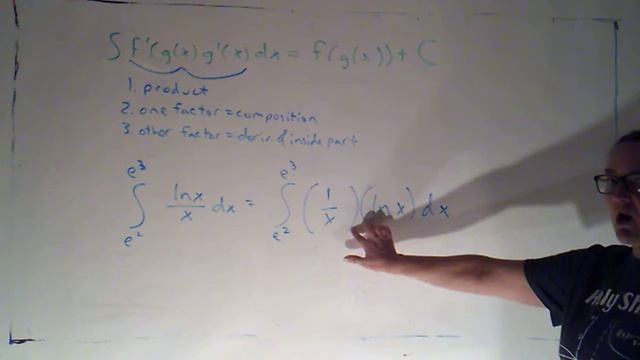 ∫ f'(g(x) g'(x) dx = f(g(x)) + C
1. product
2. one factor = composition
3. other factor = deriv. of inside part
∫_{e²}^{e³} ln x / x dx = ∫_{e²}^{e³} (1/x)(ln x) dx